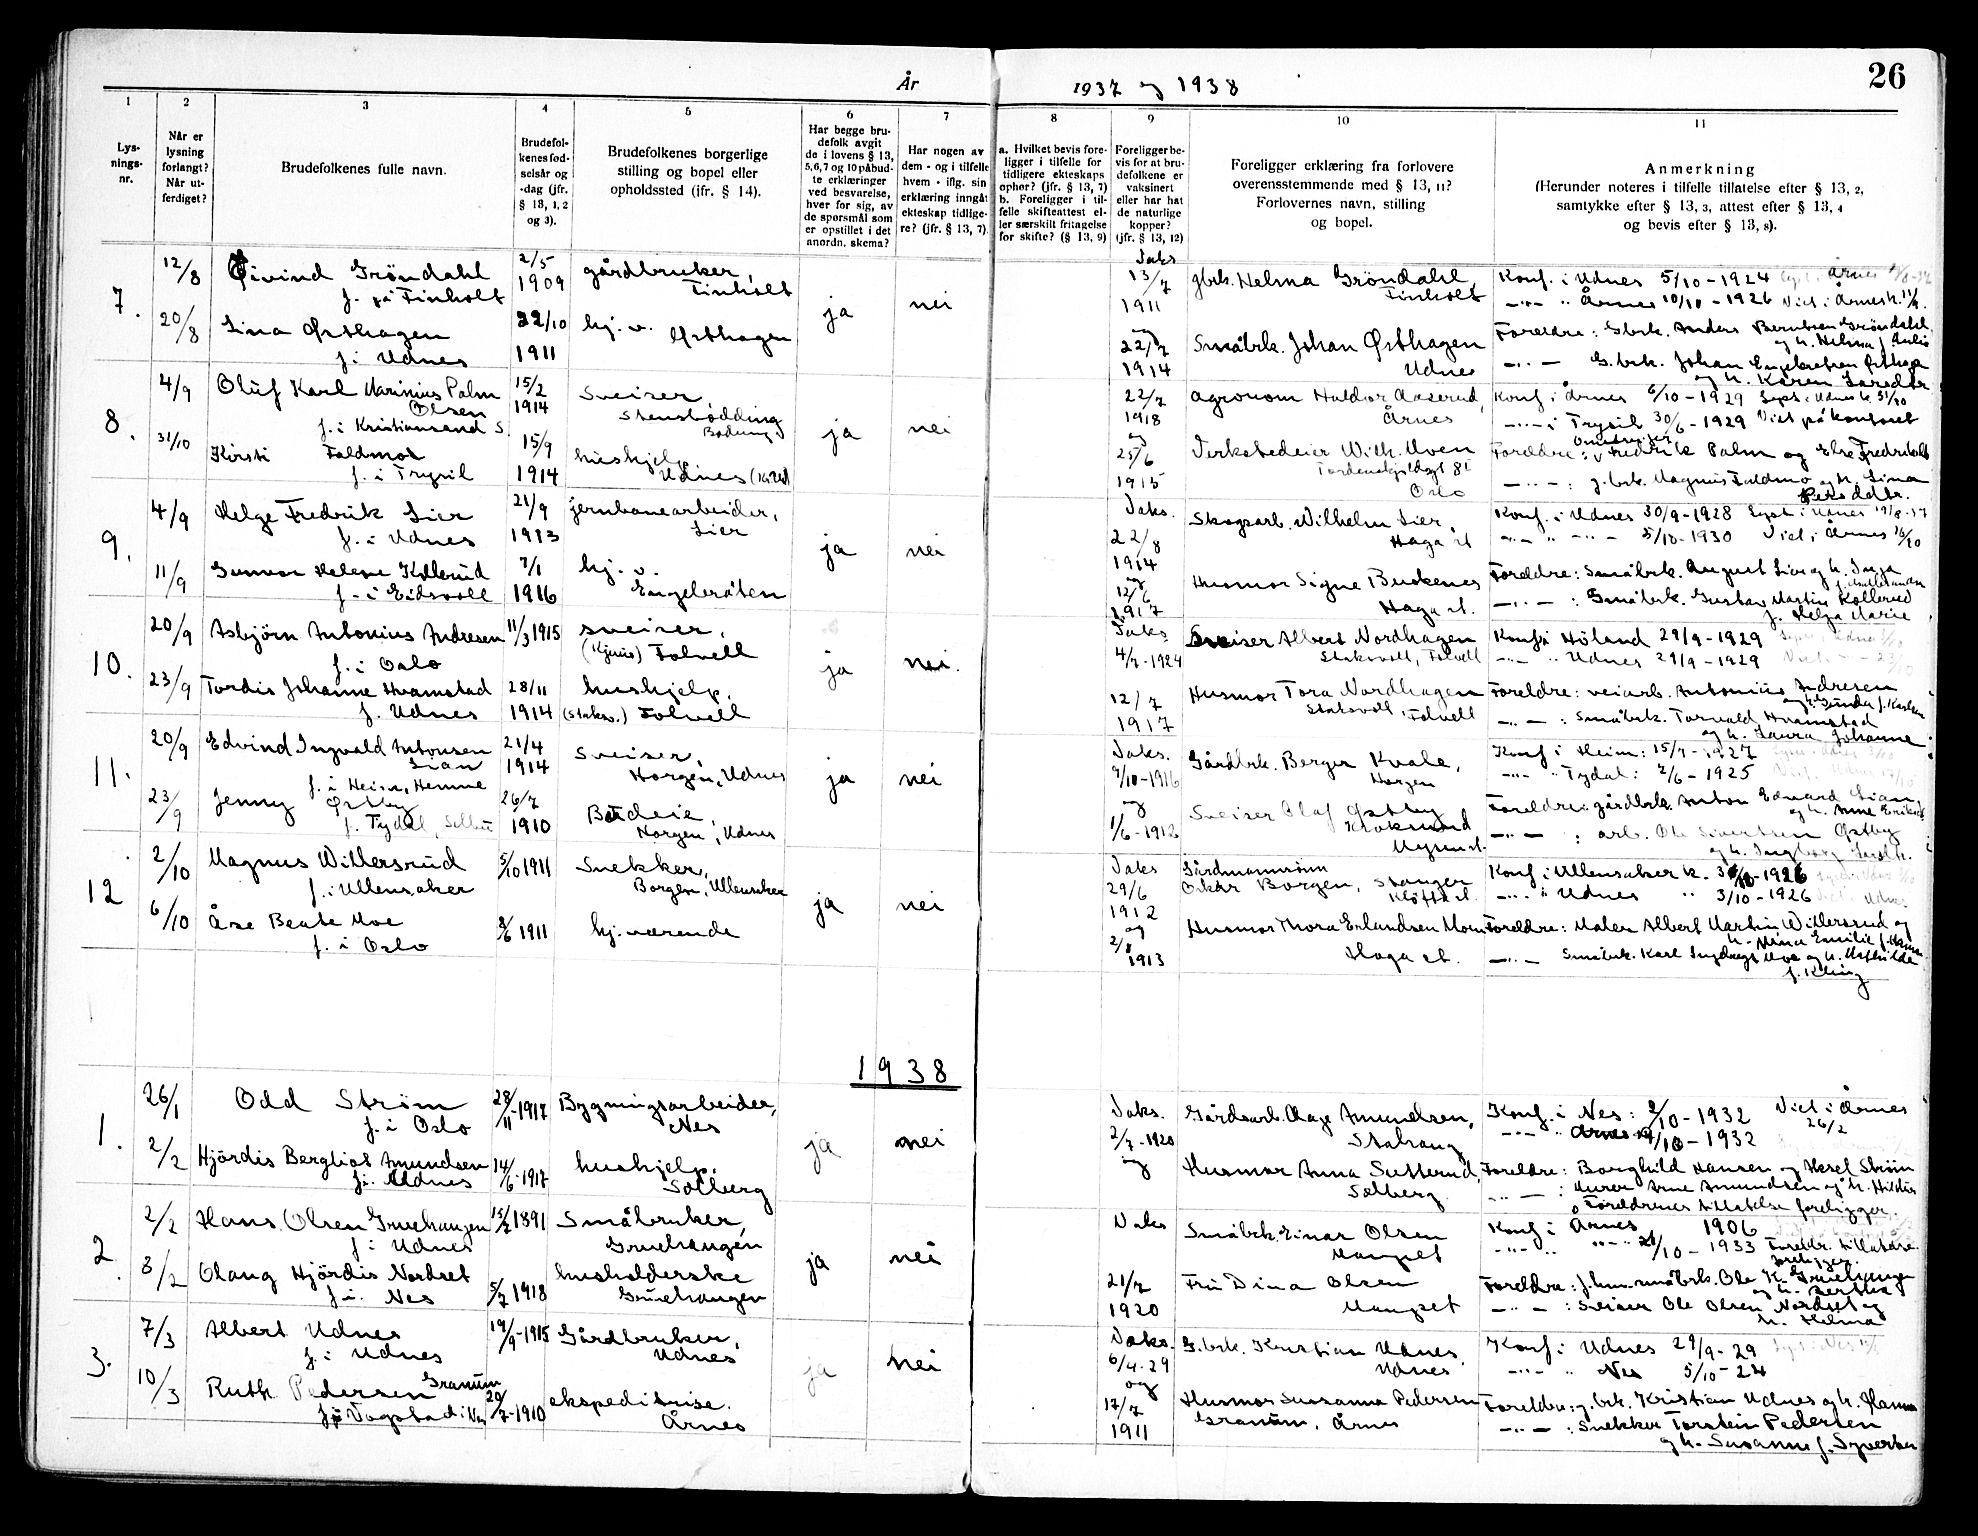 År 1937 og 1938
26
1 2 3 4 5 6 7 8 9 10 11
Lys-
nings-
nr.
Når er
lysning
forlangt?
Når ut-
ferdiget?
Brudefolkenes fulle navn.
Brudefol-
kenes fød-
selsår og
-dag (jfr.
§ 13, 1, 2
og 3).
Brudefolkenes borgerlige
stilling og bopel eller
opholdssted (jfr. § 14).
Har begge bru-
defolk avgit
de i lovens § 13,
5,6,7 og 10 påbud-
te erklæringer
ved besvarelse,
hver for sig, av
de spørsmål som
er opstillet i det
anordn. skema?
Har nogen av
dem - og i tilfelle
hvem - iflg. sin
erklæring inngått
ekteskap tidlige-
re? (jfr. § 13, 7).
a. Hvilket bevis fore-
ligger i tilfelle for
tidligere ekteskaps
ophør? (jfr. § 13, 7)
b. Foreligger i til-
felle skifteattest el-
ler særskilt fritagelse
for skifte? (§ 13, 9)
Foreligger be-
vis for at bru-
defolkene er
vaksinert
eller har hat
de naturlige
kopper?
(jfr. § 13, 12)
Foreligger erklæring fra forlovere
overensstemmende med § 13, 11?
Forlovernes navn, stilling
og bopel.
Anmerkning
(Herunder noteres i tilfelle tillatelse efter § 13, 2,
samtykke efter § 13, 3, attest efter § 13, 4
og bevis efter § 13, 8).
7.
12/8
20/8
Øivind Gröndahl
f. på Finholt
Lina Østhagen
f. i Udnes
2/5
1909
22/10
1911
gårdbruker,
Finholt
hj. v.
Østhagen
ja
nei
Vaks
13/7
1911
og
22/7
1914
gbrk. Helma Gröndahl,
Finholt
Småbrk. Johan Østhagen
Udnes
Konf. i Udnes 5/10 - 1924
Årnes 10/10 - 1926
Foreldre: Gbrk. Anders Berntsen Gröndahl
og h. Helma f.
G.brk. Johan Engebretsen
og h. Karen
8.
4/9
31/10
Oluf Karl Marinius Palm
Olsen
f. i Kristiansand S.
Kirsti Faldmo
f. i Trysil
15/2
1914
15/9
1914
Sveiser,
hushjelp
Udnes
ja
nei
22/7
1918
og
25/6
1915
agronom Haldor Aaserud,
Årnes
Verkstedeier Wilh. Moen
Oslo
Konf. i Årnes 6/10 - 1929
i Trysil 30/6 - 1929 Viet på kontoret
Foreldre: Fredrik Palm og Else
g.brk. Magnus Faldmo og h. Lina
9.
4/9
11/9
Helge Fredrik Lier
f. i Udnes
Gunvor Helene Kollerud
f. i Eidsvoll
21/9
1913
7/1
1916
jernbanearbeider,
Lier
hj. v.
Engebråten
ja
nei
Vaks.
22/8
1914
og
12/6
1917
Skogsarb. Wilhelm Lier,
Haga st
Husmor Signe Buskenes
Haga st.
Konf. i Udnes 30/9 - 1928
5/10 - 1930 Viet i Årnes 16/10
Foreldre: Småbrk. August Lier og h. Inga
Småbrk. Gustav Martin Kollerud
f. Helga Marie
10.
20/9
23/9
Asbjörn Antonius Andresen
f. i Oslo
Tordis Johanne Hvamstad
f. Udnes
11/3 1915
28/11
1914
Sveiser,
Folvell
hushjelp,
(Staksv.) Folvell
ja
nei.
Vaks
4/7 - 1924
12/7
1917
Sveiser Albert Nordhagen
Staksvoll, Folvell
Husmor Tora Nordhagen
Staksvoll, Folvell
Konf. i Höland 29/9 - 1929
Udnes 29/9 - 1929
Foreldre: veiarb. Antonius Andresen
og h. Gunda f. Karlsen
Småbrk. Torvald Hvamstad
og h. Laura Johanne
11.
20/9
23/9
Edvind Ingvald Antonsen
Lian
f. i Heim, Hemne
Jenny Østby
f. Tydal, Selbu
21/4
1914
26/7
1910
Sveiser,
Horgen, Udnes
Budeie,
Horgen, Udnes
ja
nei
Vaks.
9/10 - 1916
og
1/6 - 1912
Gårdbrk. Berger Kvale,
Horgen
Sveiser Olaf Østby
Krokslund,
Mysen st.
Konf. i Heim: 15/7 - 1927
Tydal: 2/6 - 1925
Foreldre: gårdbrk. Anton Edvard Lian
og h. Anne
arb. Ole Sivertsen Østby
og h. Ingborg
12
2/10
6/10
Magnus Willersrud
f. i Ullensaker
Åse Beate Moe
f. i Oslo
5/10 1911
8/6 1911
Snekker,
Borgen, Ullensaker
hj. værende
ja
nei
Vaks
29/6
1912
og
2/8
1913
Gårdmannssønn
Oskar Borgen, Stanger
Kløfta st.
Husmor Thora Erlandsen Moum
Haga st.
Konf. i Ullensaker k.
Udnes 3/10 - 1926
Foreldre: Maler Albert Martin Willersrud og
h. Mina Emilie f. Hansen
Småbrk. Karl Moe og h. Mathilde
f. Kling
1938
1.
26/1
2/2
Odd Ström
f. i Oslo
Hjördis Bergliot Amundsen
f. i. Udnes
28/11 - 1917
14/6 - 1917
Bygningsarbeider,
Nes
hushjelp.
Solberg
ja
nei
Vaks.
2/7 - 1920
og
Gårdsarb. Aage Amundsen,
Husmor Anna Sutterud,
Solberg.
Konf. i Nes: 2/10 - 1932 Viet i Årnes
26/2
Årnes /10 - 1932
Foreldre: Borghild Hansen og Aksel Ström
Murer Arne Amundsen og h. Hildur
Foreldrenes tillatelse foreligger.
2.
2/2
3/2
Hans Olsen Gruehaugen
f. i Udnes
Olaug Hjördis Nordset
f. i. Nes
15/2 1891
5/7 1918
Småbruker,
Gruehaugen
husholderske
Gruehaugen
ja
nei
Vaks
21/7
1920
Småbrk. Einar Olsen
Mangset
Fru Dina Olsen
Mangset
Konf. i Årnes 1906
/10 - 1933 Foreldr. tillatelse
foreligger
Foreldre: f.hm. småbrk. Ole K. Gruehaugen
og h. Berthea
Sveiser Ole Olsen Nordset og
h. Helma
3.
7/3
10/3
Albert Udnes
f. i Udnes
Ruth Pedersen Granum
f. på Vogstad i Nes
19/9 - 1915
20/7 - 1910
Gårdbruker,
Udnes
ekspeditrise.
Årnes
ja
nei
Vaks.
6/4 - 29
og
17/7
1911
G.brk. Kristian Udnes,
Udnes
Husmor Sussanna Pedersen
Granum, Årnes
Konf. i Udnes 29/9 - 29
Nes 5/10 - 24
Foreldre: g.brk. Kristian Udnes og h. Hanna
Snekker Torstein Pedersen
og h. Susanne f. Syversen